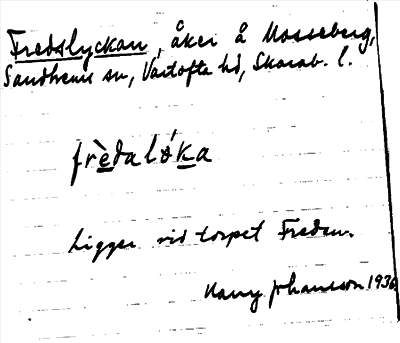 Fredslyckan, åker å Mosseberg,
Sandhems sn, Vartofta hd, Skarab. l.
frèdaló̵ka
Ligger vid torpet Freden.
Harry Johansson 1930